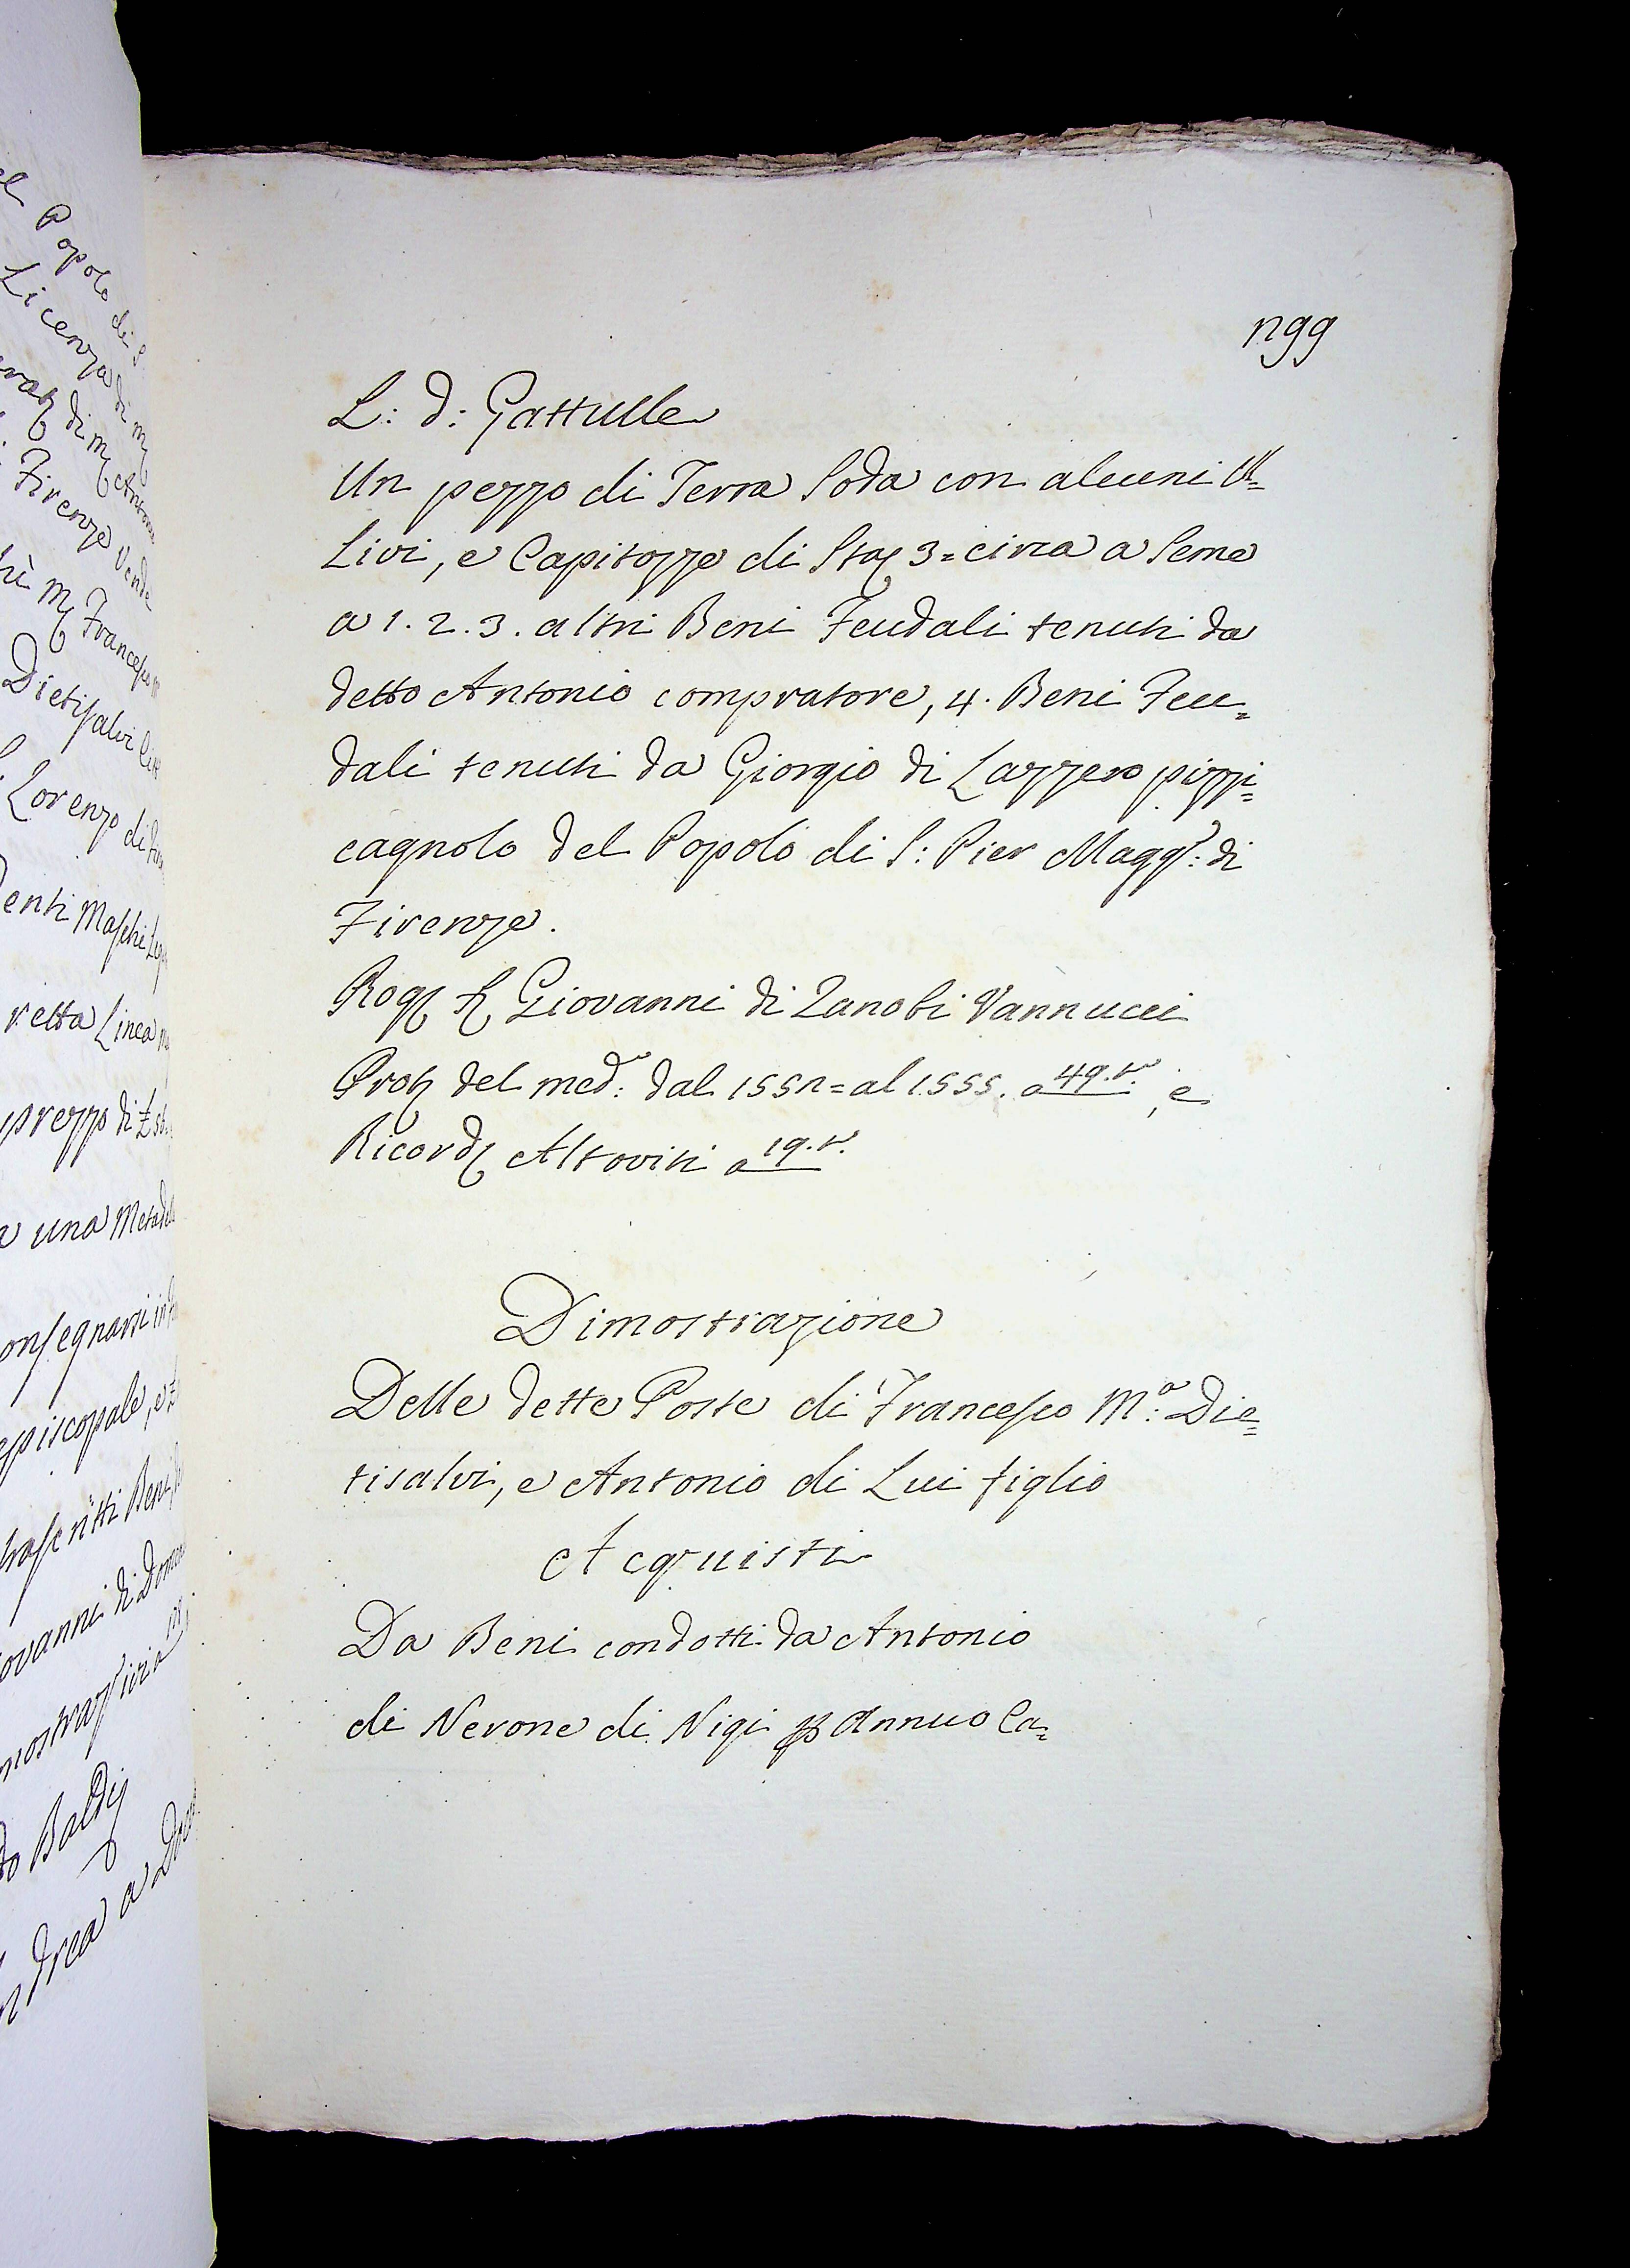 el Popolo di S.
Licenza di
di
Firenze Vende
Francesco
Dietisalvi
Lorenzo di
enti Maschi
retta Linea
prezzo di
una Metà
onsegnarsi in
episcopale, e
trascritti Beni
ovanni di Dom
mostraz
do Baldi
ndrea a
ngg
L: d: Gattulle
Un pezzo di Terra Soda con alcuni U=
Livi, e Capitozze di Sta 3= circa a Seme
a 1. 2. 3. altri Beni Feudali tenuti da
detto Antonio compratore, 4. Beni Feu=
dali tenuti da Giorgio di Lazzero pizzi=
cagnolo del Popolo di S: Pier Magg:re di
Firenze.
Rog Giovanni di Zanobi Vannucci
Prot del med:o dal 155n= al 1555. a 49. t. , e
Ricord Altoviti a 19. t.
Dimostrazione
Delle dette Poste di Francesco M:a Die=
tisalvi, e Antonio di Lui figlio
Acquisti
Da Beni condotti da Antonio
di Nerone di Nigi p Annuo Ca=